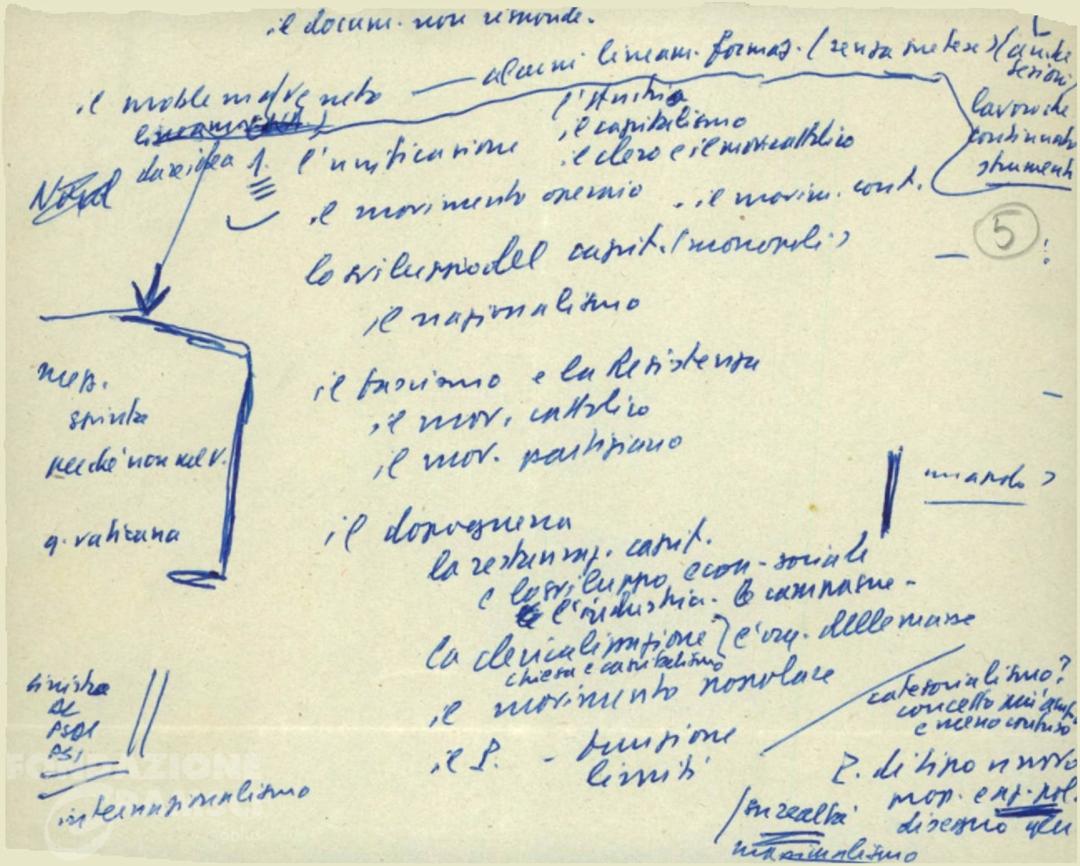 il docum. non risponde.
il problema veneto — alcuni lineam. formaz. (senza pretese) (anche
lavoro che
continuato
strumenti
dare idea 1. l'unificazione
l'Austria
il capitalismo
il clero e il mov. cattolico
Nord
il movimento operaio - il movim. cont.
5
lo sviluppo del capit. (monopoli)
il nazionalismo
il fascismo e la Resistenza
il mov. cattolico
il mov. partigiano
mezz.
spinta
perché non nel V.
q. vaticana
quando?
il dopoguerra
la restauraz. capit.
e lo sviluppo econ-sociale
l'industria - le campagne -
la clericalizzazione e l'org. delle masse
chiesa e capitalismo
il movimento popolare
il P. - funzione
limiti
sinistra
DC
PSDI
PSI
internazionalismo
categorialismo?
concetto più ampio
e meno confuso
P. di tipo nuovo
disegno
(in realtà
massimalismo
FONDAZIONE
GRAMSCI